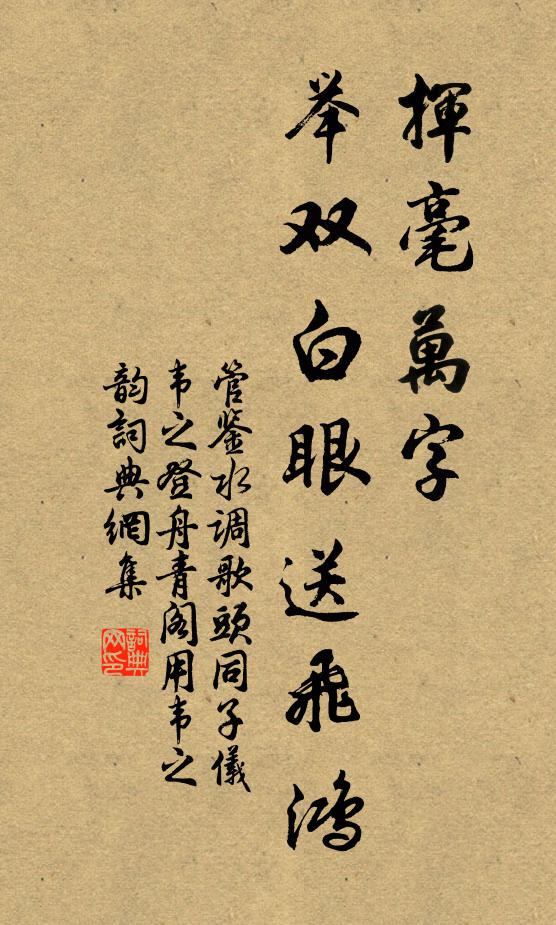 揮毫萬字
举双白眼送飛鴻
管鉴水调歌頭同子儀
韦之登舟青阁用韦之
韵詞典網集
詞典网印